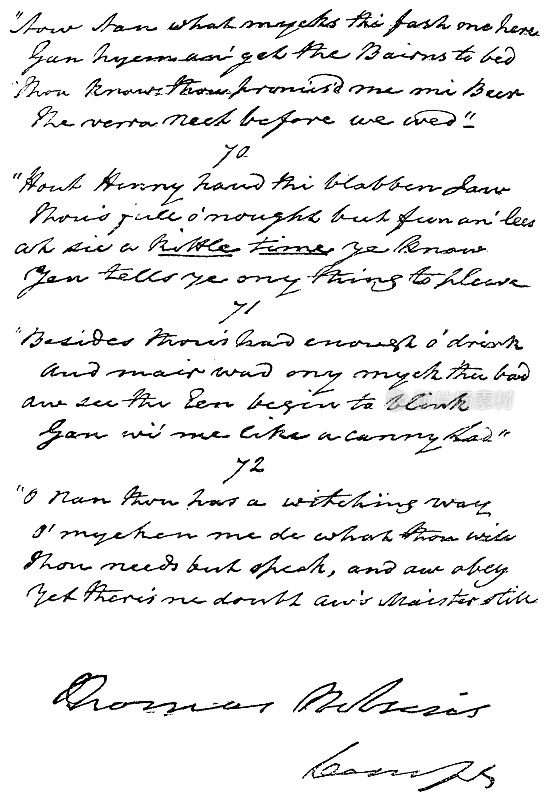 "Now Nan what mycks thi fash me here
Gan hyem an' get the Bairns to bed
Thou knows thou promis'd me mi Beer
The verra neet before we wed"
70
"Hout Hinny haud thi blabben Jaw
Thou's full o' nought but fun an' lees
At sic a kittle time, ye know
Yen tells ye ony thing to please
71
"Besides thou's had enough o' drink
And mair wad ony myek thee bad
Aw see thi Een begin to blink
Gan wi' me like a canny Lad"
72
"O Nan thou has a witching way
O' myeken me de what thou will
Thou needs but speak, and aw obey
Yet there's ne doubt aw's Maister still
Thomas Wilson